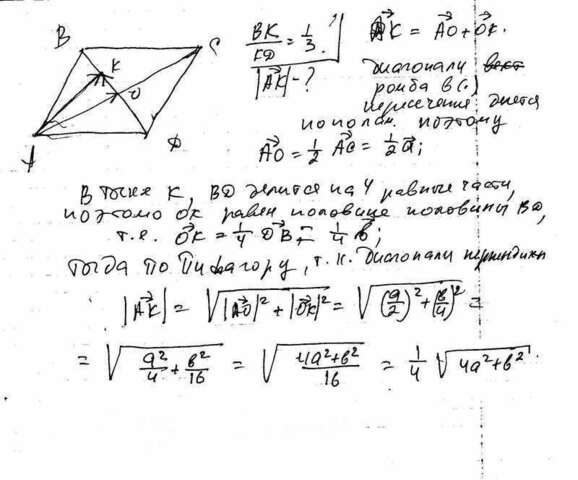 B
C
K
O
A
D
BK/KD = 1/3.
|AK⃗| - ?
AK⃗ = AO⃗ + OK⃗.
диагонали
ромба в (·)
пересечения делятся
пополам. поэтому
AO⃗ = 1/2 AC⃗ = 1/2 a⃗;
В точке K, BD делится на 4 равные части,
поэтому OK равен половине половины BD,
т.е. OK⃗ = 1/4 DB⃗ = 1/4 b⃗;
Тогда по Пифагору, т.к. диагонали перпендикул
|AK⃗| = √(|AO⃗|² + |OK⃗|²) = √((a/2)² + (b/4)²) =
= √(a²/4 + b²/16) = √((4a²+b²)/16) = 1/4 √(4a²+b²).